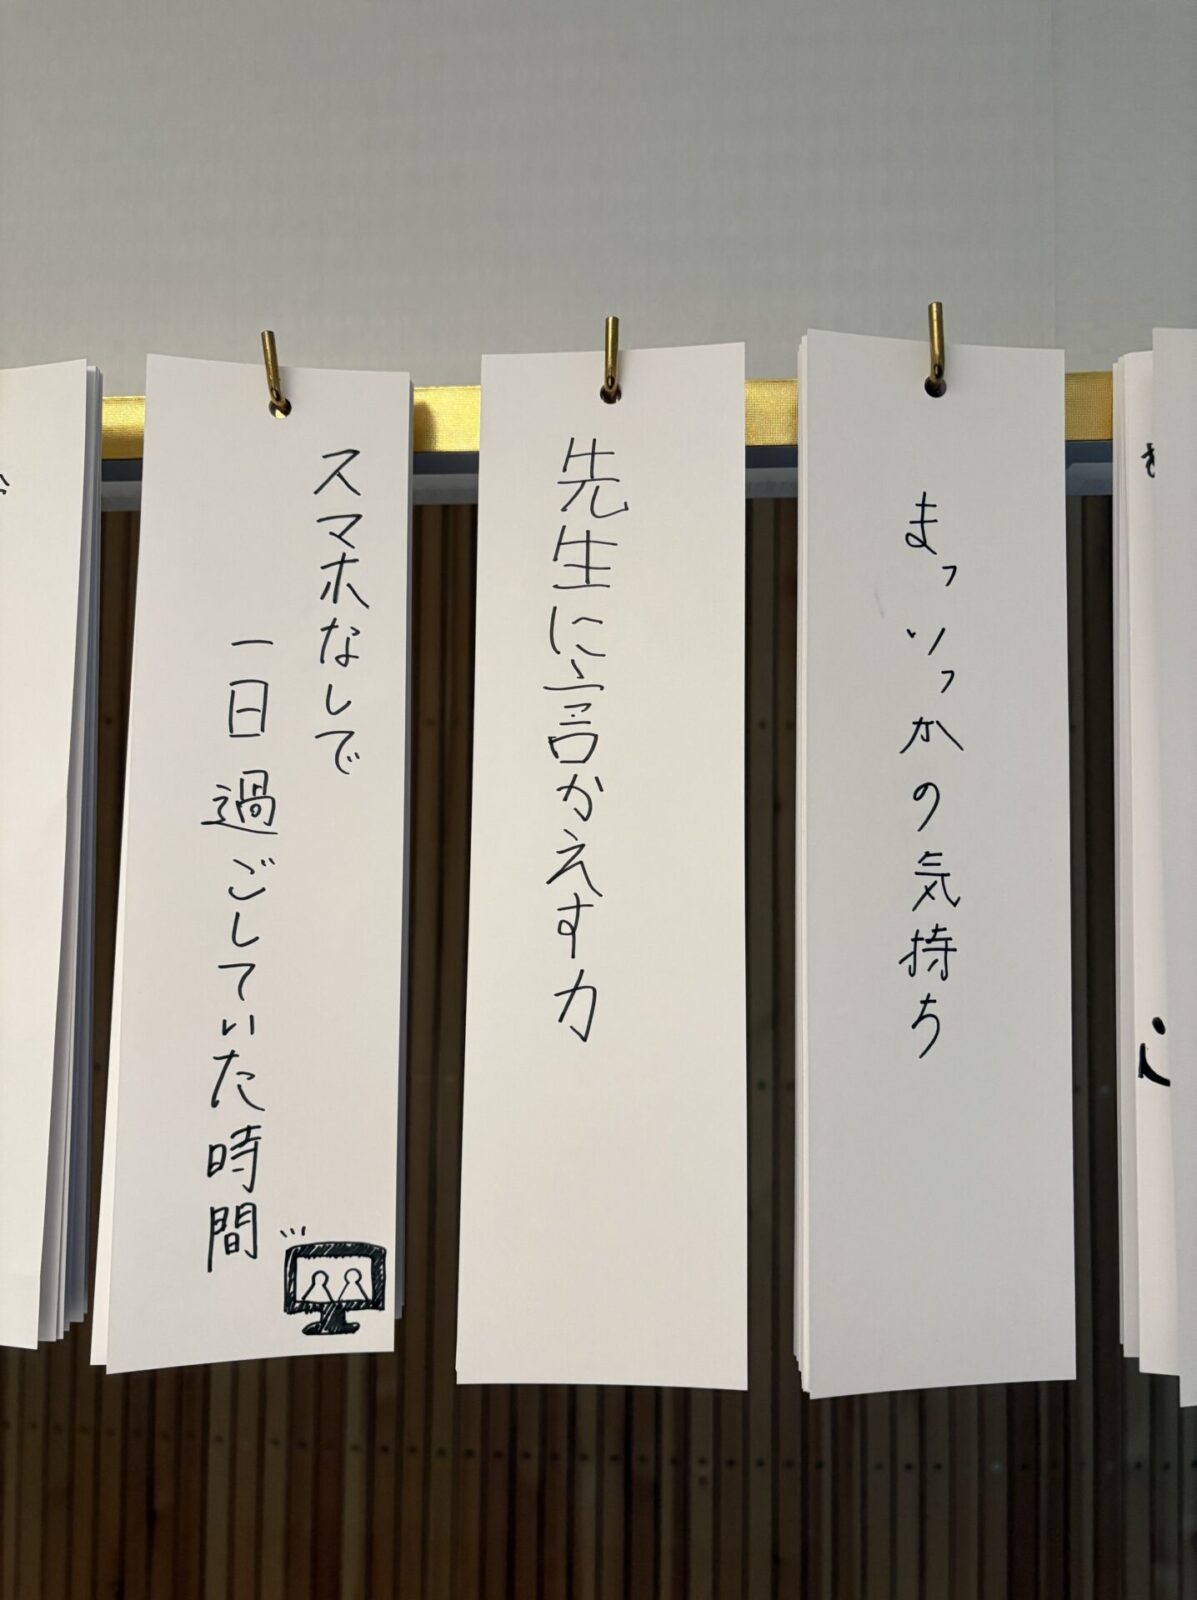 まっいっかの気持ち
先生に言かえす力
スマホなしで
一日過ごしていた時間